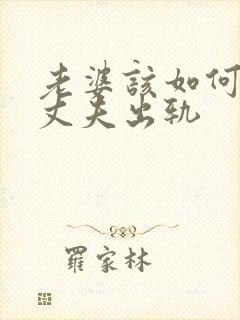 老婆該如何
丈夫出轨
羅家林